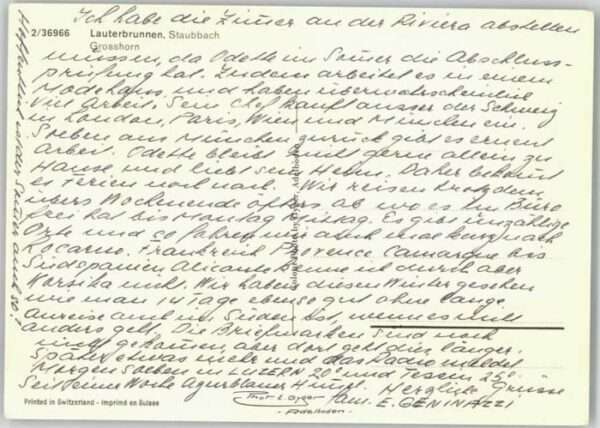 Ich habe die Zimer an der Riviera abstellen
2/36966 Lauterbrunnen, Staubbach
Grosshorn
müssen, da Odette im Somer die Abschluss-
prüfung hat. Zudem arbeitet es in einem
Modehaus und haben
viel Arbeit. Sein Chef kauft ausser der Schweiz
in London, Paris, Wien und München ein.
Soeben aus München zurück gibt es erneut
Arbeit. Odette bleibt nicht gerne allein zu
Hause und liebt sein Heim. Daher
es Ferien noch nach. Wir reisen trotzdem
übers Wochenende öfters ab wo es im Büro
frei hat bis Montag Mittag. Es gibt unzählige
Orte und so fahren wir auch mal kurz nach
Locarno. Frankreich Provence Camargue bis
Südspanien, Alicante kenne ich durch aber
Korsika nicht. Wir haben diesen Winter gesehen
wie man 14 Tage ebenso gut ohne lange
Anreise auch im Süden ist, wenn es nicht
anders geht. Die Briefmarken sind noch
nicht gekommen, aber dort geht's immer länger.
Später etwas mehr und das Radio meldet
Morgen soeben in LUZERN 20° und Tessin 25°
Seit einer Woche Azurblauer Himel. Herzliche Grüsse
Fam. E. GENINAZZI
Printed in Switzerland - Imprimé en Suisse
Thor E Gyger
Adelboden
Hoffentlich ist der Somer auch so!